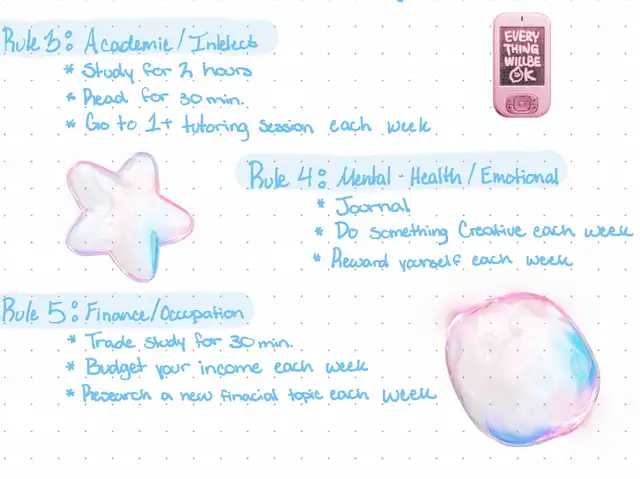 Rule 3: Academic/Intelect
* Study for 2 hours
* Read for 30 min.
* Go to 1+ tutoring session each week
EVERY
THING
WILL BE
OK
Rule 4: Mental-Health/Emotional
* Journal
* Do something Creative each week
* Reward yourself each week
Rule 5: Finance/Occupation
* Trade study for 30 min.
* Budget your income each week
* Research a new finacial topic each week